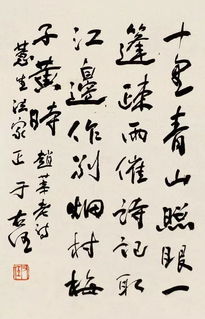 十里青山照眼一
篷疎雨催詩記取
江邊作別烟村梅
子黃時 趙華老詩
慧生法家正 于右任